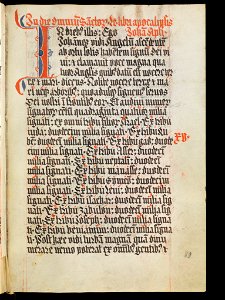 In die omnium sanctorum Lectio libri apocalipsis
Iohannis Apli
In diebus illis: Ego
Iohannes vidi Angelum ascendente
ab ortu solis habentem signum dei vi
vi: et clamavit voce magna qua
tuor Angelis quibus datum est nocere ter
re et mari dicens Nolite nocere terre et ma
ri neq arboribus: quoadusq signemus servos
dei nostri in frontibus eorum Et audivi numerum
signatorum centum quadraginta quatuor milia
signati: ex omni tribu filiorum israel Ex tribu
iuda: duodecim milia signati Ex tribu Ru
ben: duodecim milia signati Ex tribu gad: duode
cim milia signati Ex tribu Aser: duodecim
milia signati Ex tribu neptali: duodecim
milia signati Ex tribu manasse: duodecim mi
lia signati Ex tribu symeon: duodecim milia
signati Ex tribu levi: duodecim milia signa
ti Ex tribu isachar: duodecim milia signa
ti Ex tribu zabulon: duodecim milia signa
ti Ex tribu Ioseph: duodecim milia signa
ti Ex tribu beniamin: duodecim milia signa
ti Post hec vidi turbam magnam quam dinu
merare nemo poterat ex omnibus gentibus et